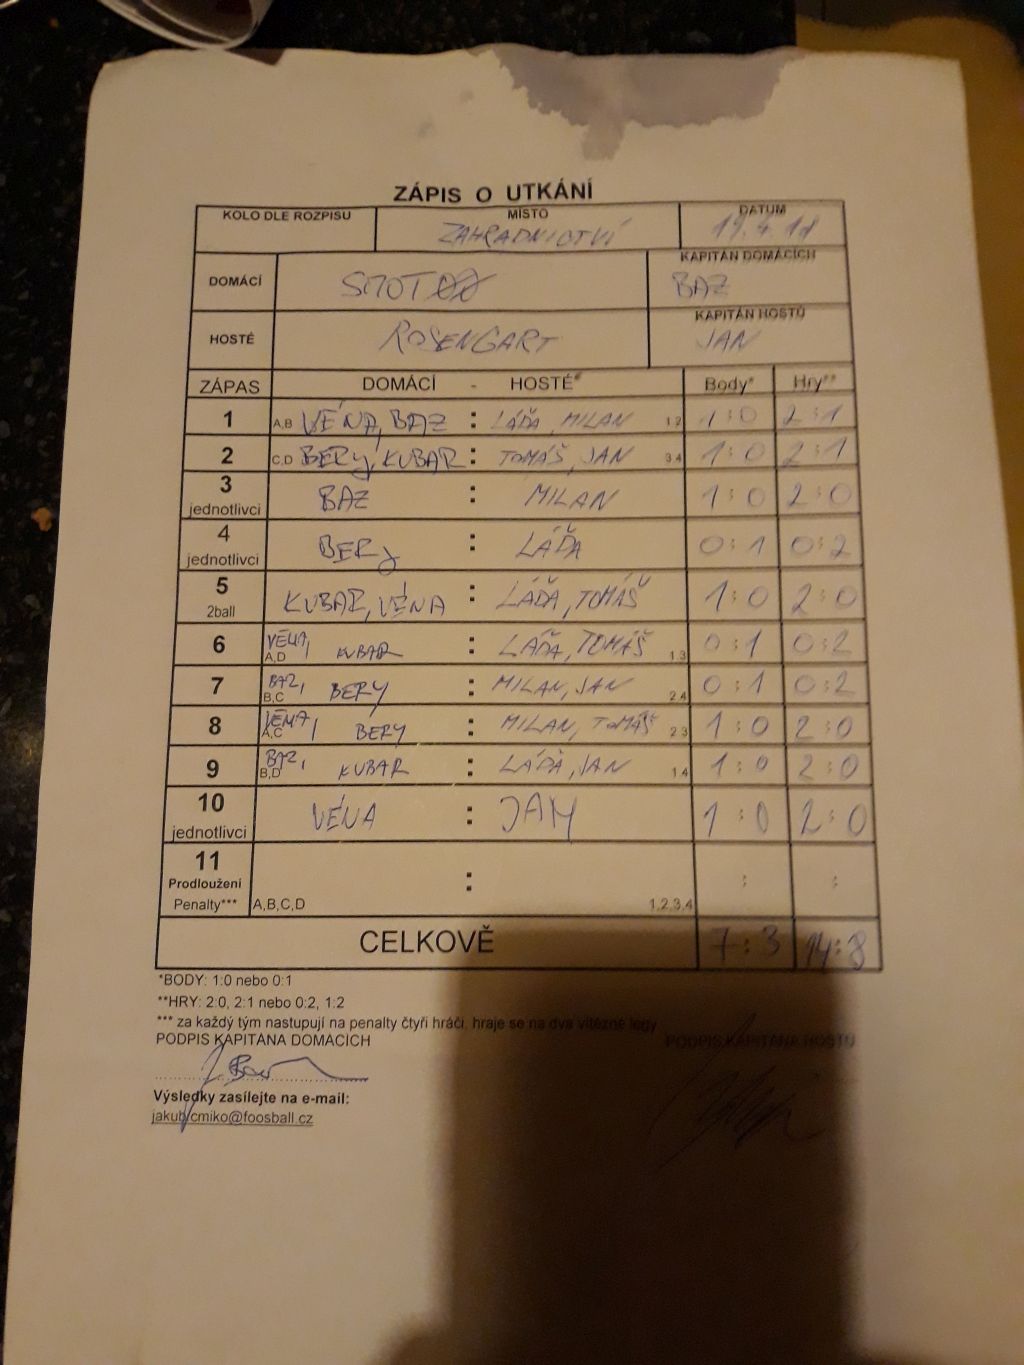 ZÁPIS O UTKÁNÍ
KOLO DLE ROZPISU MÍSTO DATUM
ZAHRADNICTVÍ 19.4.18
DOMÁCÍ KAPITÁN DOMÁCÍCH
BAZ
HOSTÉ ROSENGART KAPITÁN HOSTŮ
JAN
ZÁPAS DOMÁCÍ - HOSTÉ* Body* Hry**
1 A,B VÉNA, BAZ : LÁĎA, MILAN 1.2 1:0 2:1
2 C,D BERY, KUBAR : TOMÁŠ, JAN 3.4 1:0 2:1
3 jednotlivci BAZ : MILAN 1:0 2:0
4 jednotlivci BERY : LÁĎA 0:1 0:2
5 2ball KUBAR, VÉNA : LÁĎA, TOMÁŠ 1:0 2:0
6 A,D VÉNA, KUBAR : LÁĎA, TOMÁŠ 1.3 0:1 0:2
7 B,C BAZ, BERY : MILAN, JAN 2.4 0:1 0:2
8 A,C VÉNA, BERY : MILAN, TOMÁŠ 2.3 1:0 2:0
9 B,D BAZ, KUBAR : LÁĎA, JAN 1.4 1:0 2:0
10 jednotlivci VÉNA : JAN 1:0 2:0
11 Prodloužení : : :
Penalty*** A,B,C,D 1,2,3,4
CELKOVĚ 7:3 14:8
*BODY: 1:0 nebo 0:1
**HRY: 2:0, 2:1 nebo 0:2, 1:2
*** za každý tým nastupují na penalty čtyři hráči, hraje se na dva vítězné legy
PODPIS KAPITÁNA DOMÁCÍCH PODPIS KAPITÁNA HOSTŮ
Výsledky zasílejte na e-mail:
jakub.cmiko@foosball.cz